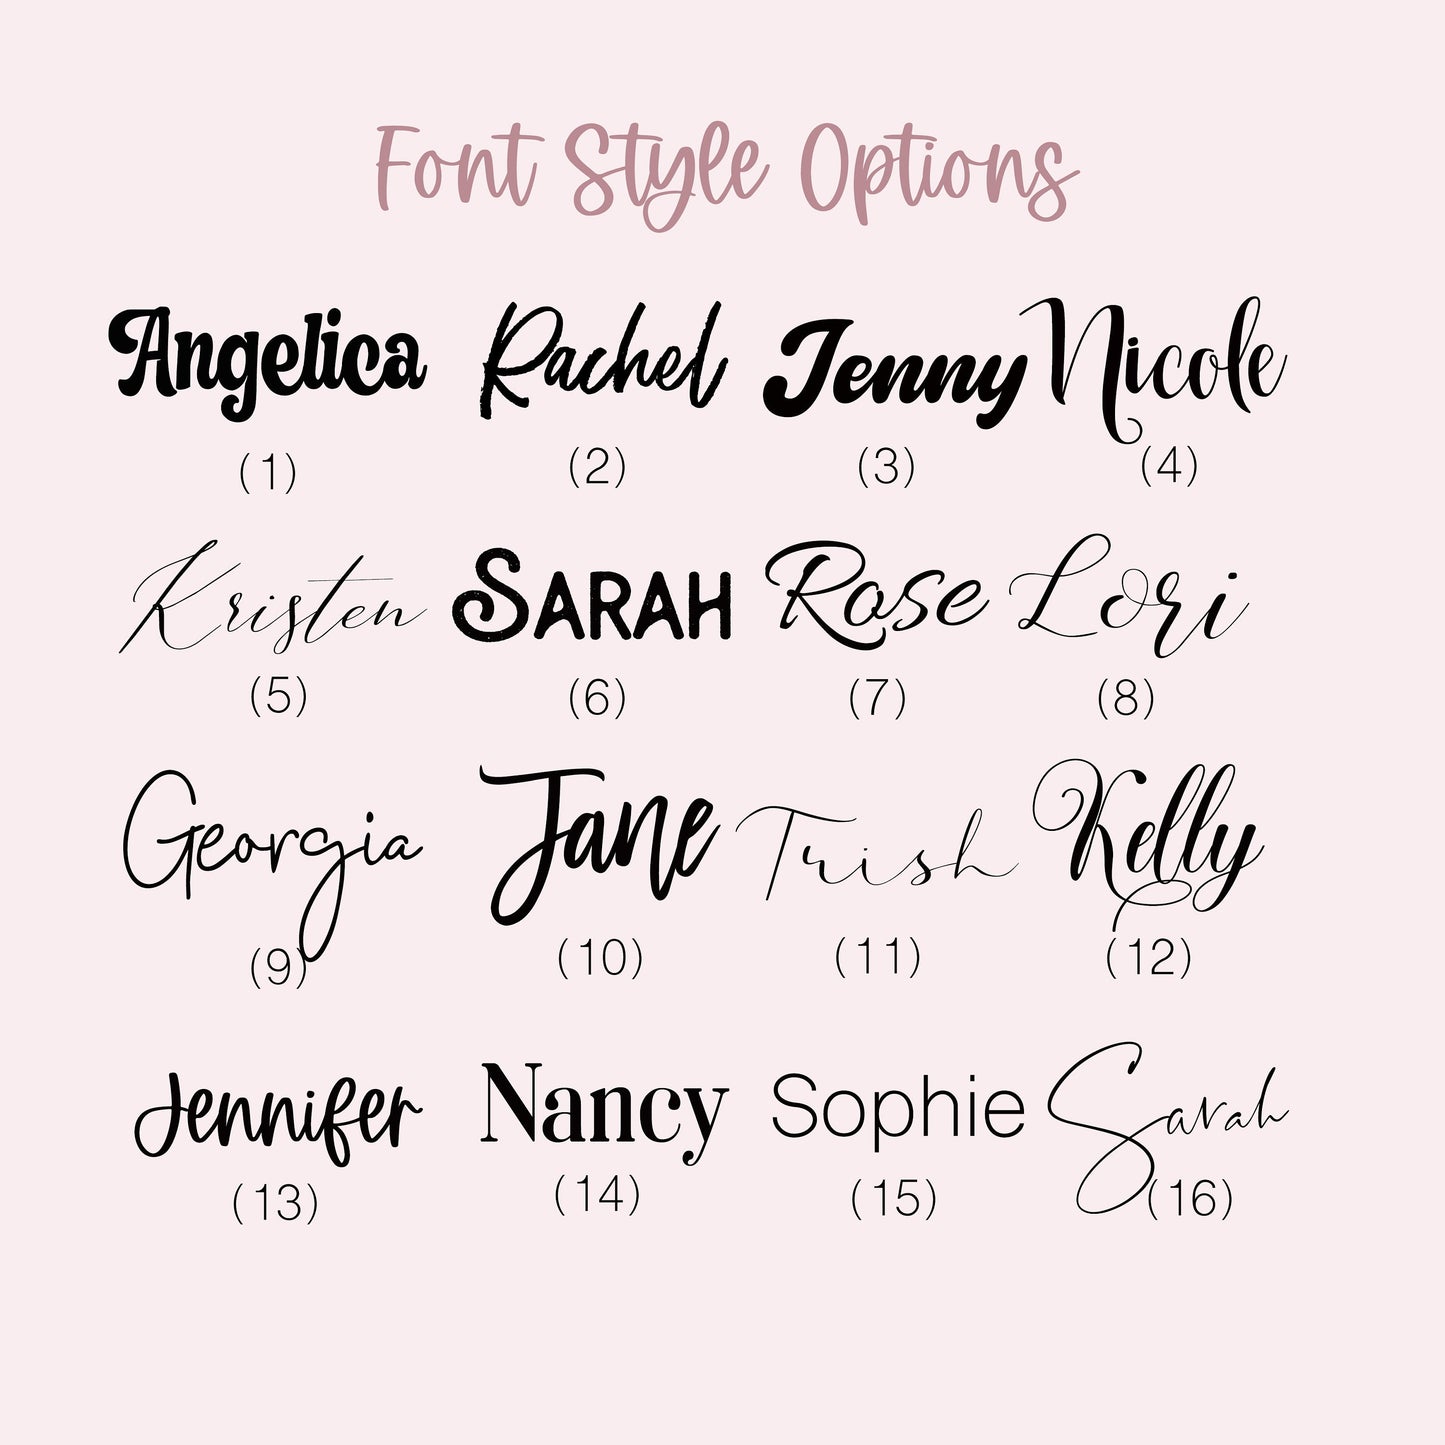 Font Style Options
Angelica Rachel Jenny Nicole
(1) (2) (3) (4)
Kristen SARAH Rose Lori
(5) (6) (7) (8)
Georgia Jane Trish Kelly
(9) (10) (11) (12)
Jennifer Nancy Sophie Sarah
(13) (14) (15) (16)